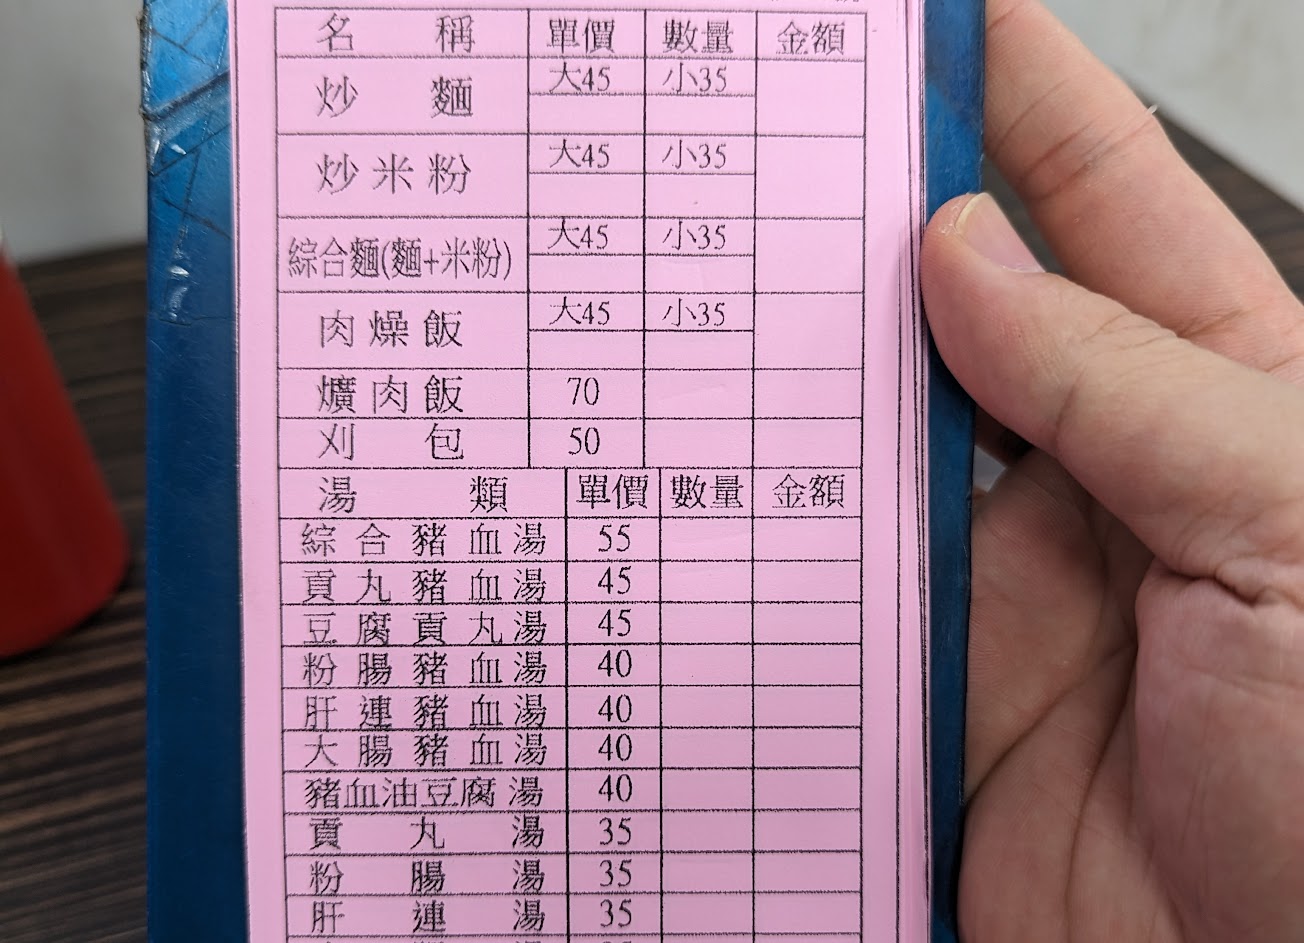 名 稱 單價 數量 金額
炒 麵 大45 小35
炒 米 粉 大45 小35
綜合麵(麵+米粉) 大45 小35
肉 燥 飯 大45 小35
爌 肉 飯 70
刈 包 50
湯 類 單價 數量 金額
綜 合 豬 血 湯 55
貢 丸 豬 血 湯 45
豆 腐 貢 丸 湯 45
粉 腸 豬 血 湯 40
肝 連 豬 血 湯 40
大 腸 豬 血 湯 40
豬血油豆腐 湯 40
貢 丸 湯 35
粉 腸 湯 35
肝 連 湯 35